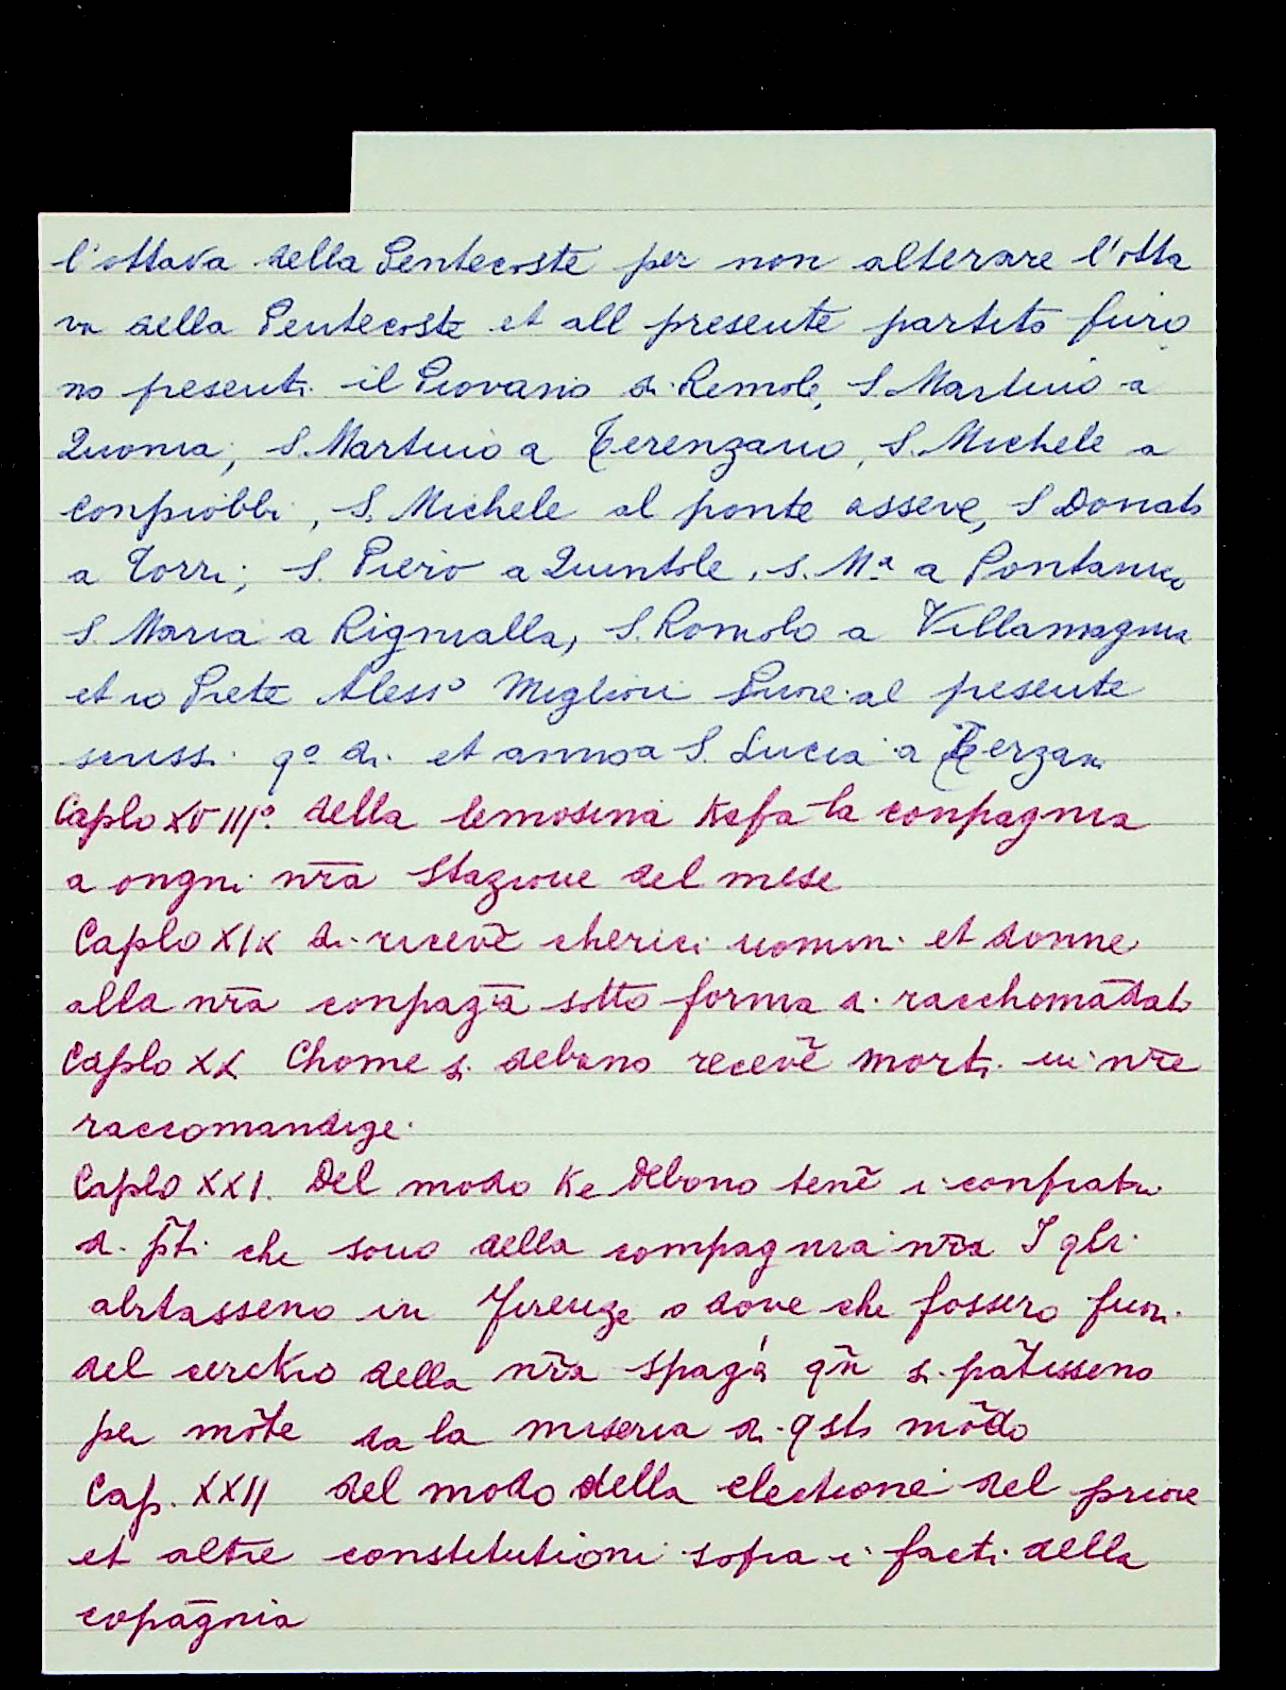 l'ottava della Pentecoste per non alterare l'otta
va della Pentecoste et all presente partito furo
no presenti il Piovano di Remole, S. Martino a
Quona, S. Martino a Terenzano, S. Michele a
Conpiobbi, S. Michele al ponte asseve, S Donato
a Torri; S. Piero a Quintole, S. Mª a Pontanico
S. Maria a Rignialla, S. Romolo a Villamagnia
et io Prete Aless° Migliori Priore al presente
scrissi q° di et anno a S. Lucia a Terzano
Caplo XVIII° della lemosina ke fa la conpagnia
a ongni nr̃a stazione del mese
Caplo XIX di ricevẽ cherici uomini et donne
alla nr̃a conpag̃a sotto forma di racchomãdati
Caplo XX Chome si debono recevẽ morti in nr̃e
raccomandige.
Caplo XXI. Del modo Ke debono tenẽ i confratri
di p̃ti che sono della compagnia nr̃a I q̃li
abitasseno in Firenze o dove che fossero fuori
del cerckio della nr̃a spag̃a qñ si pãtisseno
per mõte da la miseria di qsto mõdo
Cap. XXII del modo della electione del priore
et altre constitutioni sopra i facti della
copãgnia